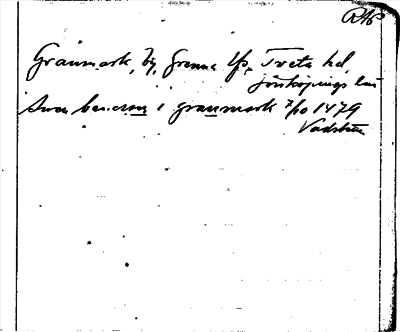 RAp
Granmark, by, Grenna lfs, Tveta hd,
Jönköpings län
Swen benctson i granmark 7/10 1479
Vadstena